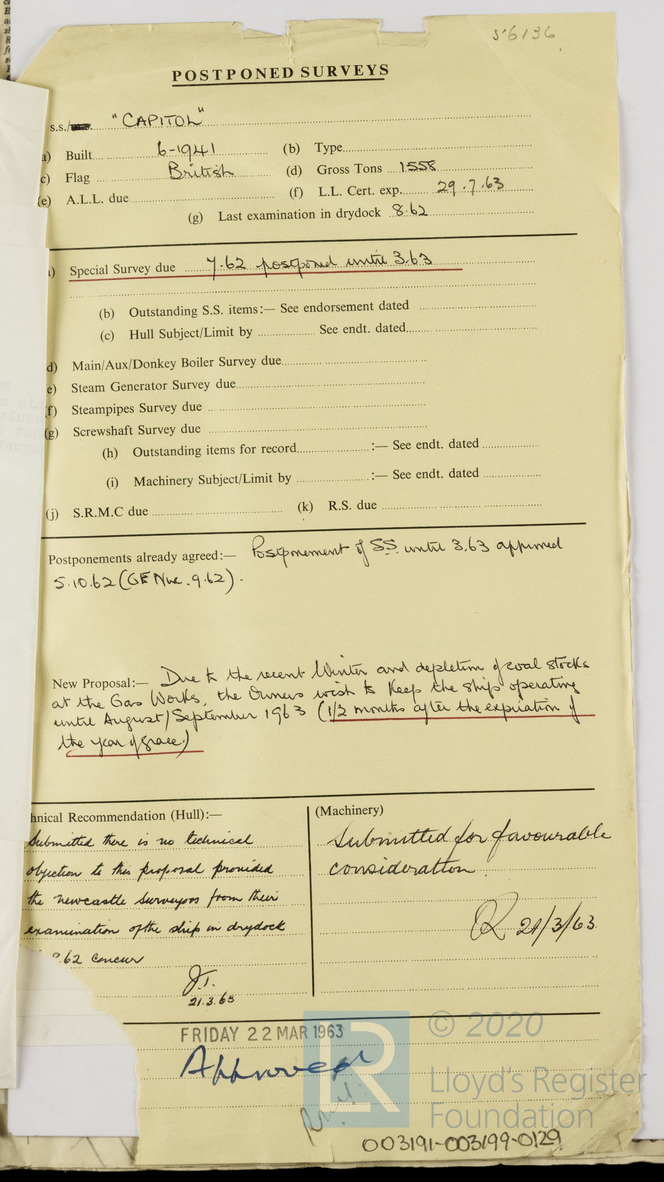 S6136
POSTPONED SURVEYS
s.s./ "CAPITOL"
a) Built 6-1941 (b) Type
c) Flag British (d) Gross Tons 1558
(e) A.L.L. due (f) L.L. Cert. exp. 29.7.63
(g) Last examination in drydock 8.62
) Special Survey due 7.62 postponed until 3.63
(b) Outstanding S.S. items:— See endorsement dated
(c) Hull Subject/Limit by See endt. dated
d) Main/Aux/Donkey Boiler Survey due
e) Steam Generator Survey due
(f) Steampipes Survey due
(g) Screwshaft Survey due
(h) Outstanding items for record :— See endt. dated
(i) Machinery Subject/Limit by :— See endt. dated
(j) S.R.M.C due (k) R.S. due
Postponements already agreed:— Postponement of SS. until 3.63 approved
5.10.62 (GE Nwc. 9.62).
New Proposal:— Due to the recent Winter and depletion of coal stocks
at the Gas Works, the Owners wish to keep the ship operating
until August/September 1963 (1/2 months after the expiration of
the year of grace)
hnical Recommendation (Hull):— (Machinery)
Submitted there is no technical
objection to this proposal provided
the newcastle surveyors from their
examination of the ship in drydock
.62 concur
J.T.
21.3.63
Submitted for favourable
consideration.
21/3/63
FRIDAY 22 MAR 1963
Approved
LR © 2020
Lloyd's Register
Foundation
003191-003199-0129